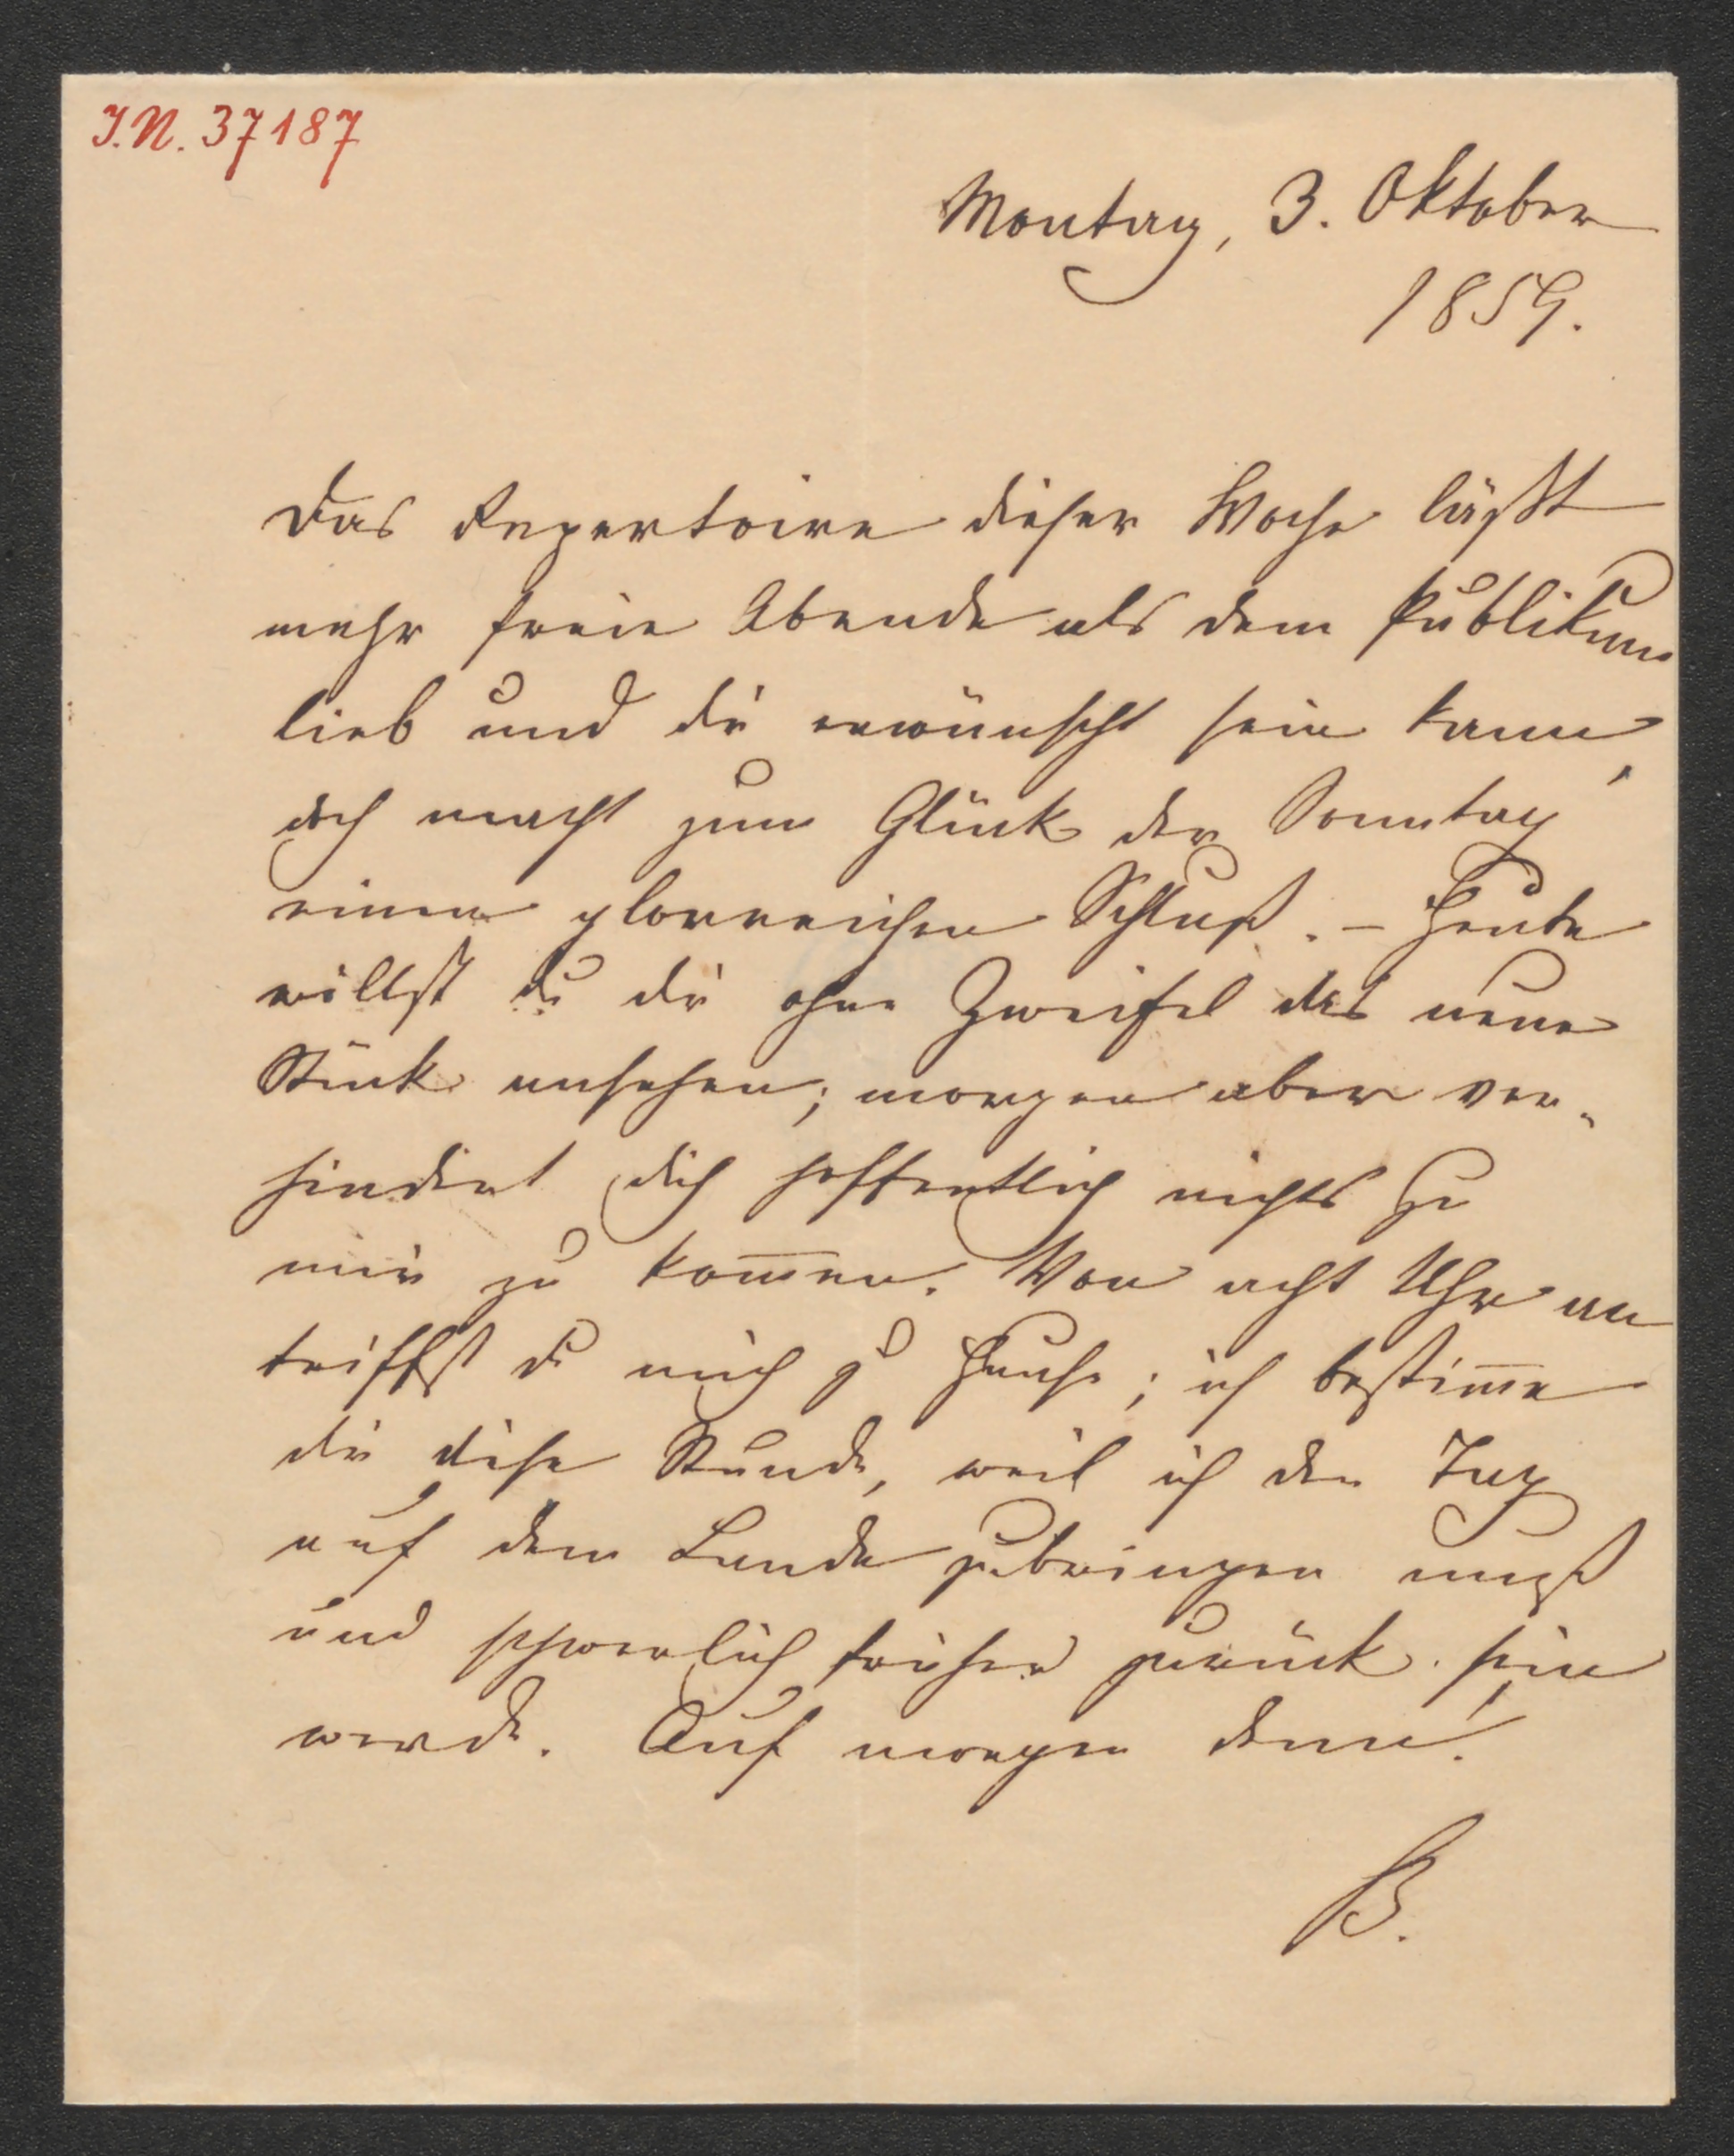 I.N. 37187
Montag, 3. Oktober
1859.
Das Repertoire dieser Woche läßt
mehr freie Abende als dem Publikum
lieb und dir erwünscht sein kann,
doch macht zum Glück der Sonntag
einen glorreichen Schluß. – Heute
willst du dir ohne Zweifel das neue
Stück ansehen; morgen aber ver-
hindert dich hoffentlich nichts zu
mir zu kom̅en. Von acht Uhr an
triffst du mich zu Hause; ich bestim̅e
dir diese Stunde, weil ich den Tag
auf dem Lande zubringen muß
und schwerlich früher zurück sein
werde. Auf morgen denn!
B.